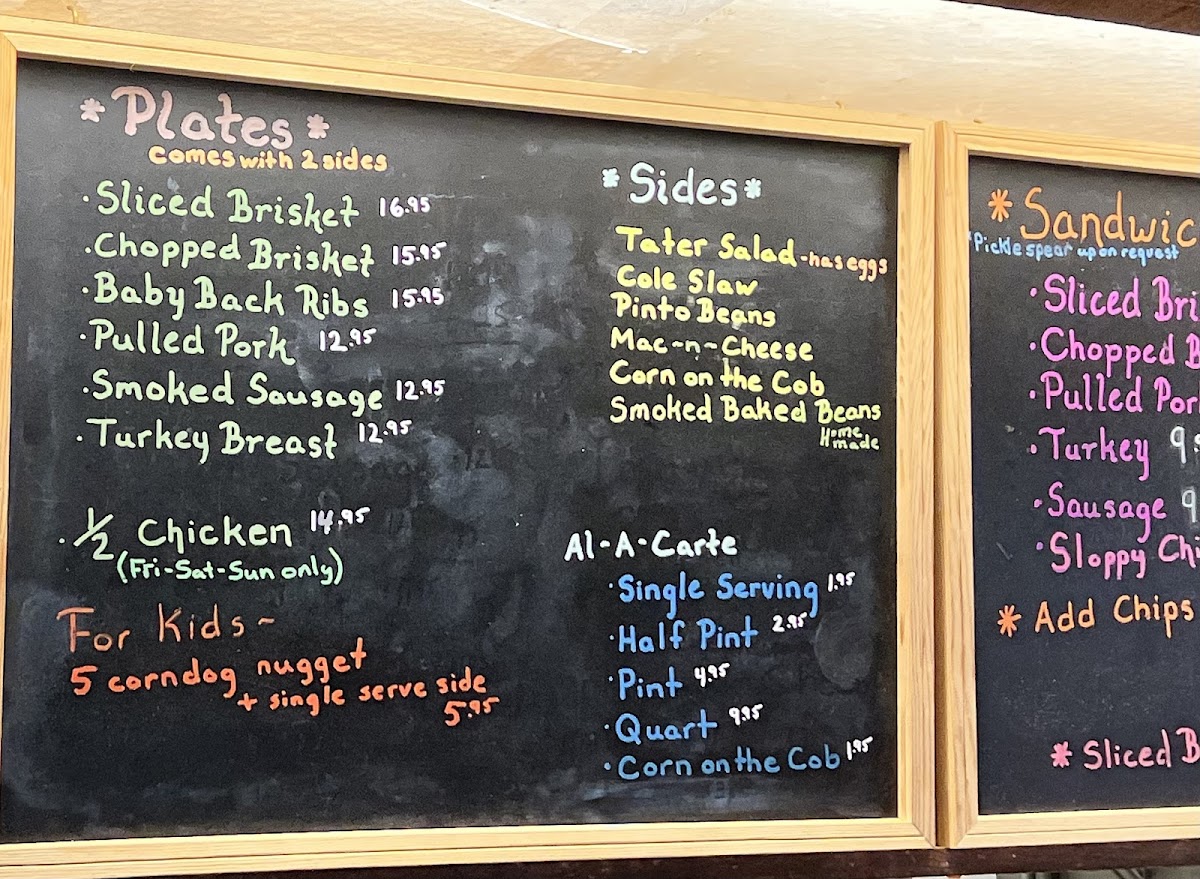 *Plates*
comes with 2 sides
·Sliced Brisket 16.95
·Chopped Brisket 15.95
·Baby Back Ribs 15.95
·Pulled Pork 12.95
·Smoked Sausage 12.95
·Turkey Breast 12.95
·1/2 Chicken 14.95
(Fri-Sat-Sun only)
For Kids~
5 corndog nugget
+ single serve side
5.95
*Sides*
Tater Salad -has eggs
Cole Slaw
Pinto Beans
Mac-n-Cheese
Corn on the Cob
Smoked Baked Beans
Home
made
Al-A-Carte
·Single Serving 1.95
·Half Pint 2.95
·Pint 4.95
·Quart 9.95
·Corn on the Cob 1.95
*Sandwic
*Pickle spear upon request
·Sliced Bri
·Chopped B
·Pulled Por
·Turkey 9
·Sausage 9
·Sloppy Chi
* Add Chips
* Sliced B